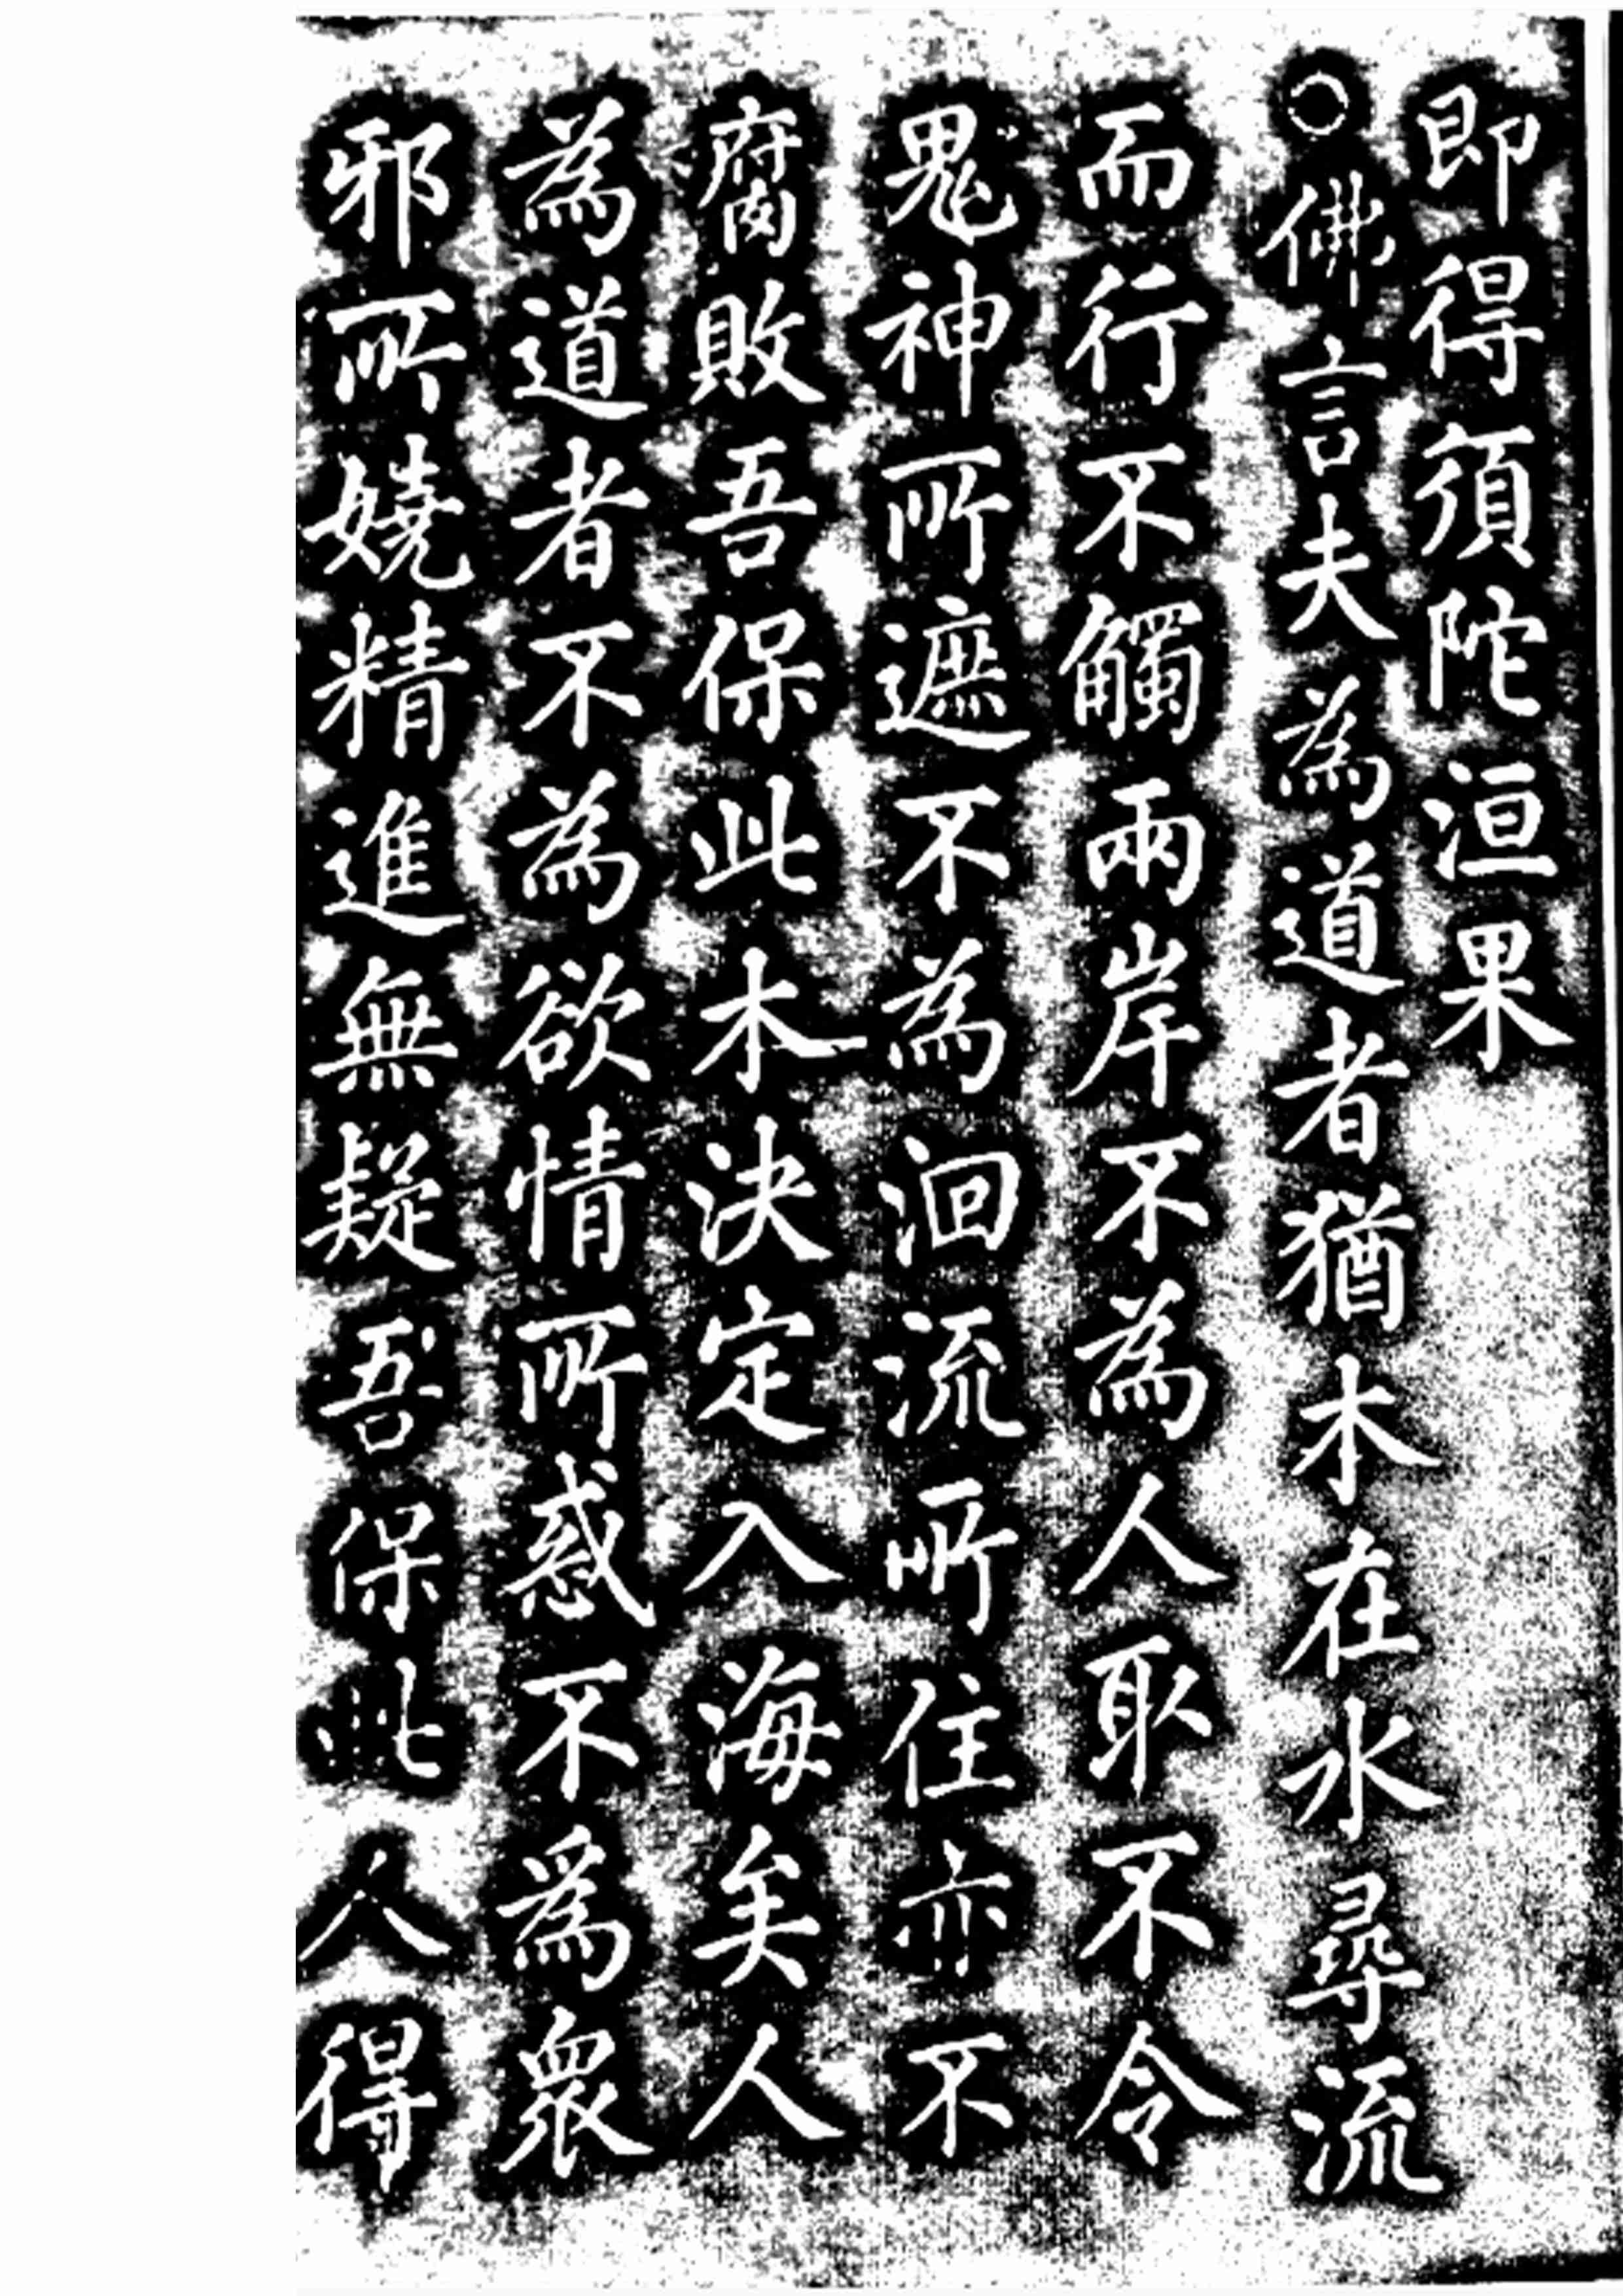 即得須陀洹果
○佛言夫為道者猶木在水尋流
而行不觸兩岸不為人取不令
鬼神所遮不為洄流所住亦不
腐敗吾保此木決定入海矣人
為道者不為欲情所惑不為眾
邪所嬈精進無疑吾保此人得